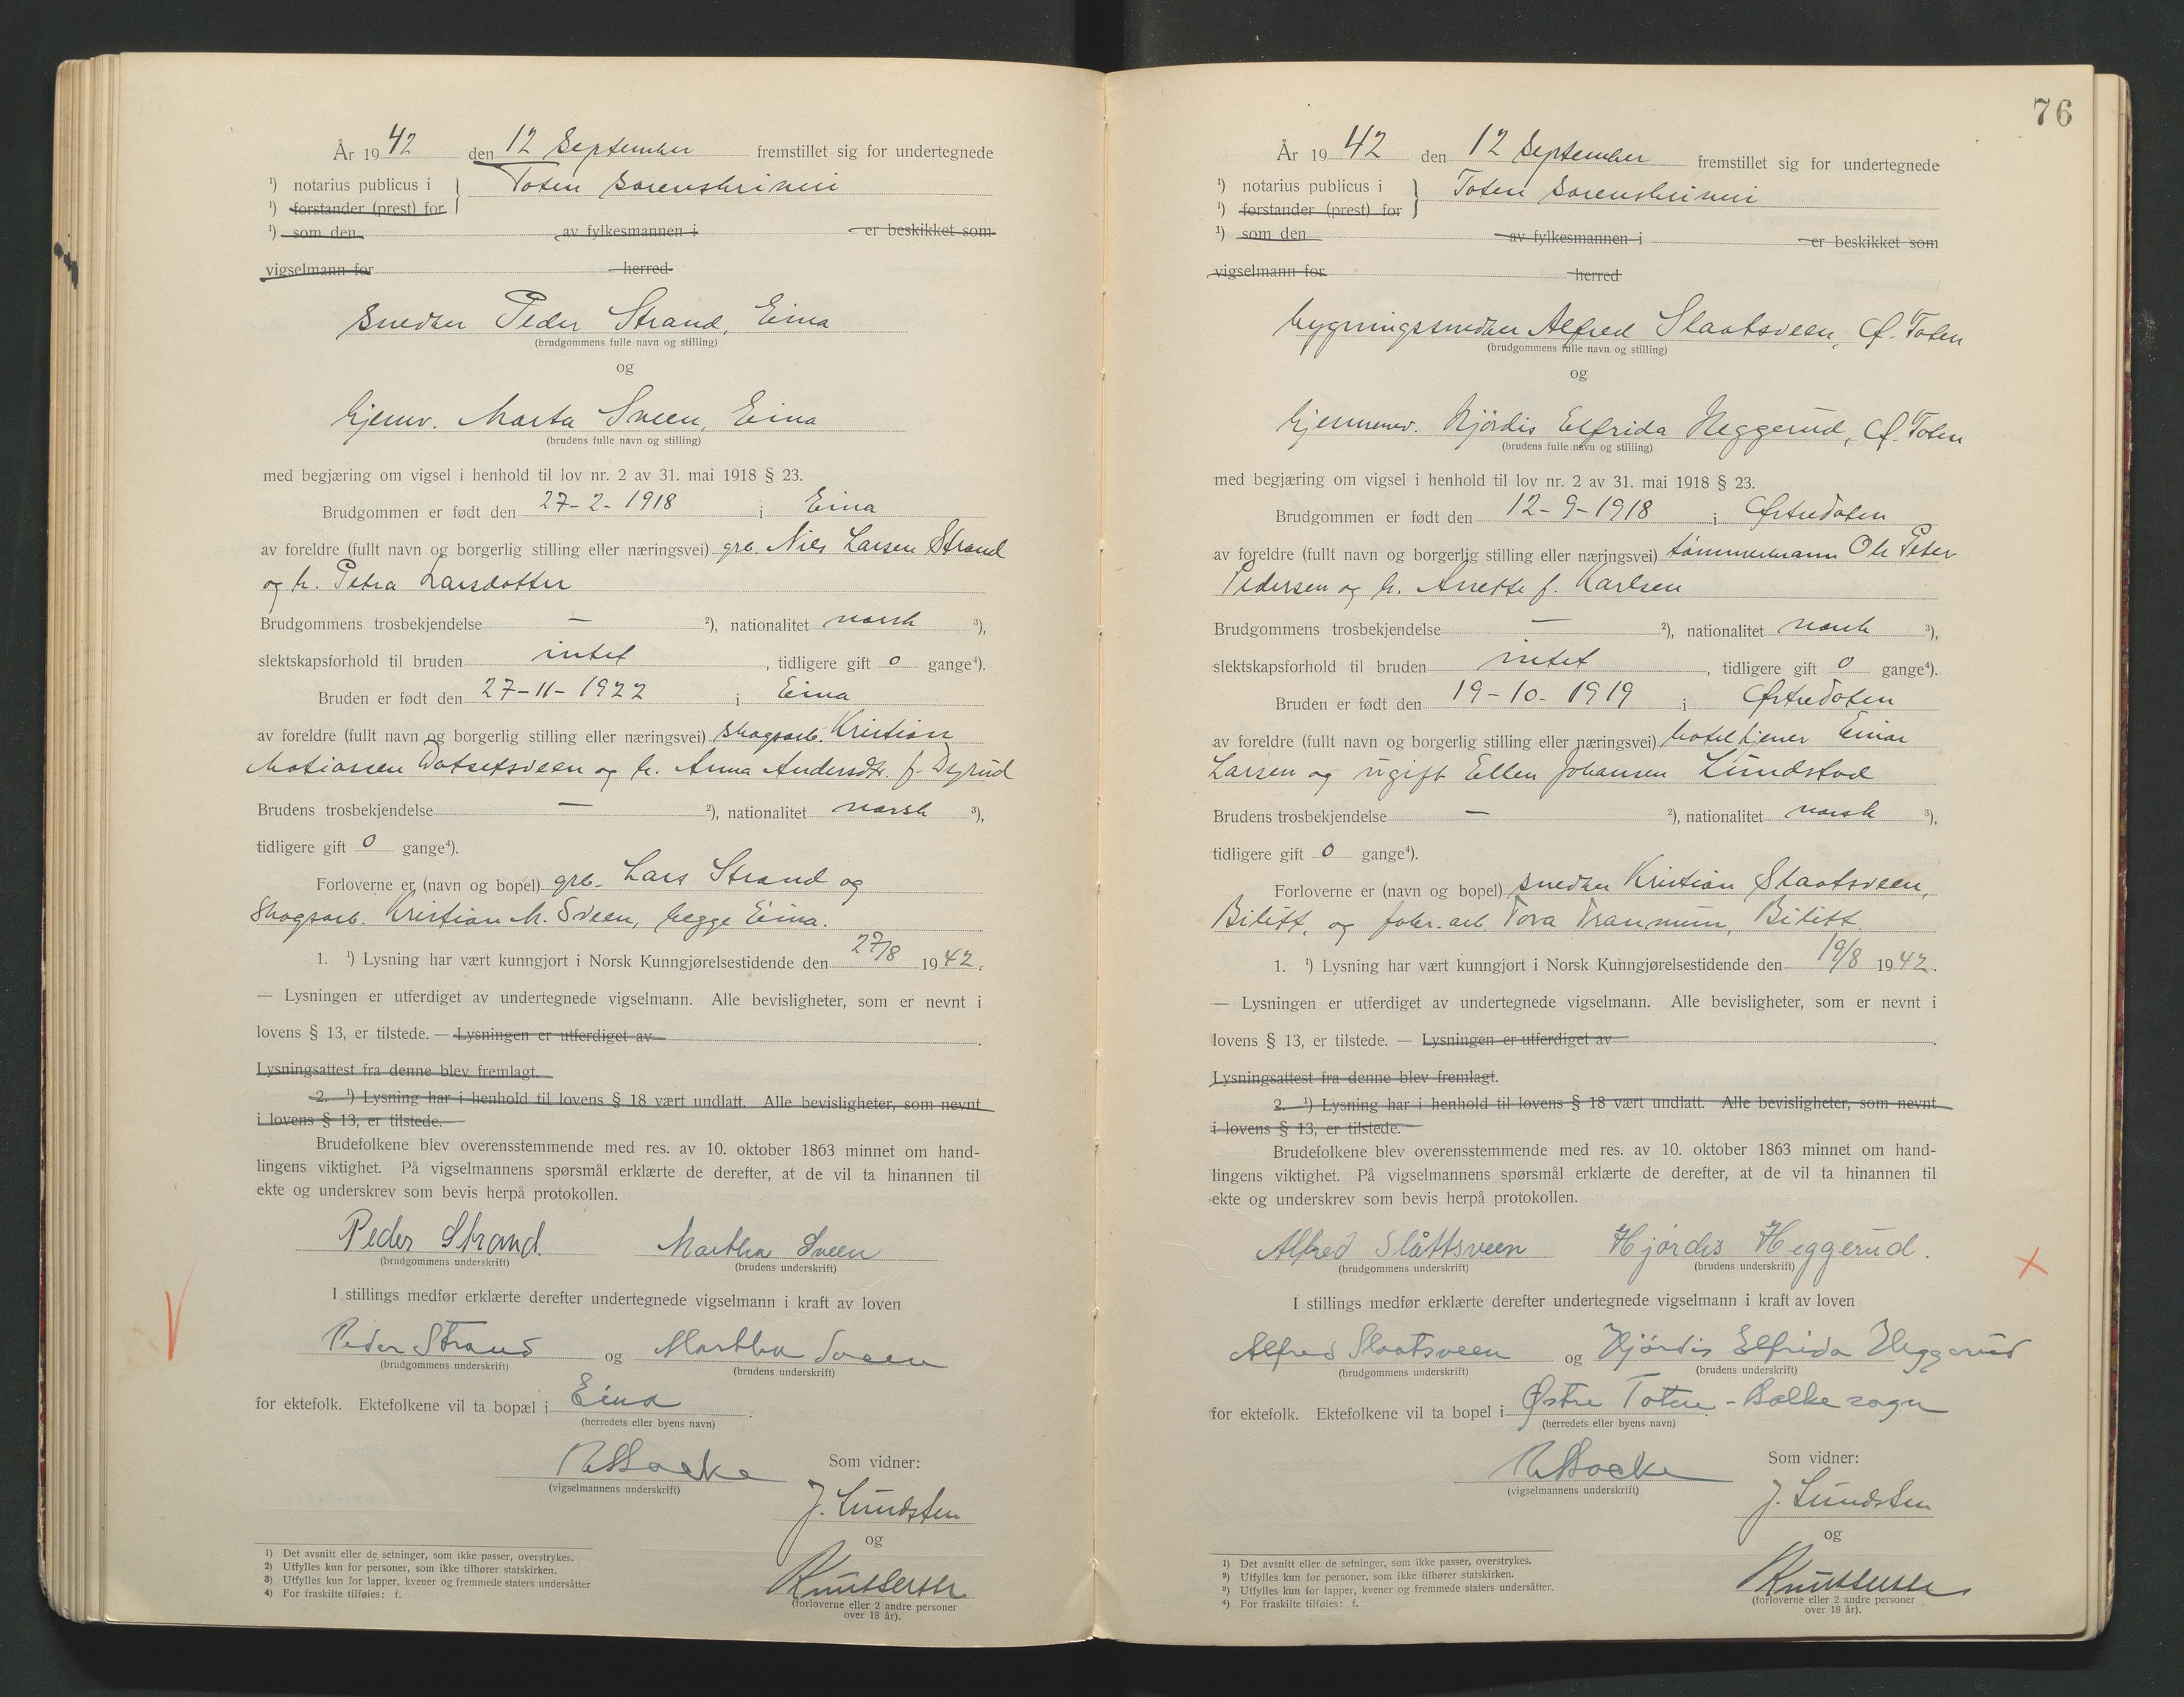 År 1942 den 12 September fremstillet sig for undertegnede
¹) notarius publicus i } Toten sorenskriveri
¹) forstander (prest) for
¹) som den av fylkesmannen i er beskikket som
vigselmann for herred
snedker Peder Strand, Eina
(brudgommens fulle navn og stilling)
og
hjemv. Marta Sveen, Eina
(brudens fulle navn og stilling)
med begjæring om vigsel i henhold til lov nr. 2 av 31. mai 1918 § 23.
Brudgommen er født den 27-2-1918 i Eina
av foreldre (fullt navn og borgerlig stilling eller næringsvei) grb. Nils Larsen Strand
og h. Petra Larsdotter
Brudgommens trosbekjendelse — ²), nationalitet norsk ³),
slektskapsforhold til bruden intet, tidligere gift 0 gange⁴).
Bruden er født den 27-11-1922 i Eina
av foreldre (fullt navn og borgerlig stilling eller næringsvei) skogsarb. Kristian
Matiassen og h. Anna Andersdtr. f. Dyrud
Brudens trosbekjendelse — ²), nationalitet norsk ³),
tidligere gift 0 gange⁴).
Forloverne er (navn og bopel) grb. Lars Strand og
Skogsarb. Kristian M. Sveen, begge Eina.
1. ¹) Lysning har vært kunngjort i Norsk Kunngjørelsestidende den 27/8 1942.
— Lysningen er utferdiget av undertegnede vigselmann. Alle bevisligheter, som er nevnt i
lovens § 13, er tilstede. — Lysningen er utferdiget av .
Lysningsattest fra denne blev fremlagt.
2. ¹) Lysning har i henhold til lovens § 18 vært undlatt. Alle bevisligheter, som nevnt
i lovens § 13, er tilstede.
Brudefolkene blev overensstemmende med res. av 10. oktober 1863 minnet om hand-
lingens viktighet. På vigselmannens spørsmål erklærte de derefter, at de vil ta hinannen til
ekte og underskrev som bevis herpå protokollen.
Peder Strand Martha Sveen
(brudgommens underskrift) (brudens underskrift)
I stillings medfør erklærte derefter undertegnede vigselmann i kraft av loven
Peder Strand og Martha Sveen
(brudgommens underskrift) (brudens underskrift)
for ektefolk. Ektefolkene vil ta bopæl i Eina
(herredets eller byens navn)
Som vidner:
(vigselmannens underskrift)
J. Lundsten
og
(forloverne eller 2 andre personer
over 18 år).
¹) Det avsnitt eller de setninger, som ikke passer, overstrykes.
²) Utfylles kun for personer, som ikke tilhører statskirken.
³) Utfylles kun for lapper, kvener og fremmede staters undersåtter
⁴) For fraskilte tilføies: f.
76
År 1942 den 12 September fremstillet sig for undertegnede
¹) notarius publicus i } Toten sorenskriveri
¹) forstander (prest) for
¹) som den av fylkesmannen i er beskikket som
vigselmann for herred
bygningssnedker Alfred Slaatsveen, Ø. Toten
(brudgommens fulle navn og stilling)
og
hjemmev. Hjördis Elfrida Heggerud, Ø. Toten
(brudens fulle navn og stilling)
med begjæring om vigsel i henhold til lov nr. 2 av 31. mai 1918 § 23.
Brudgommen er født den 12-9-1918 i Østre Toten
av foreldre (fullt navn og borgerlig stilling eller næringsvei) tömmermann Ole Peter
Pedersen og h. Anette f. Karlsen
Brudgommens trosbekjendelse — ²), nationalitet norsk ³),
slektskapsforhold til bruden intet, tidligere gift 0 gange⁴).
Bruden er født den 19-10-1919 i Østre Toten
av foreldre (fullt navn og borgerlig stilling eller næringsvei) hoteltjener Einar
Larsen og ugift Ellen Johansen Lundstad
Brudens trosbekjendelse — ²), nationalitet norsk ³),
tidligere gift 0 gange⁴).
Forloverne er (navn og bopel) snedker Kristian Slaatsveen,
Bilitt, og fabr. arb. Tora Tranmum, Bilitt.
1. ¹) Lysning har vært kunngjort i Norsk Kunngjørelsestidende den 19/8 1942.
— Lysningen er utferdiget av undertegnede vigselmann. Alle bevisligheter, som er nevnt i
lovens § 13, er tilstede. — Lysningen er utferdiget av .
Lysningsattest fra denne blev fremlagt.
2. ¹) Lysning har i henhold til lovens § 18 vært undlatt. Alle bevisligheter, som nevnt
i lovens § 13, er tilstede.
Brudefolkene blev overensstemmende med res. av 10. oktober 1863 minnet om hand-
lingens viktighet. På vigselmannens spørsmål erklærte de derefter, at de vil ta hinannen til
ekte og underskrev som bevis herpå protokollen.
Alfred Slåttsveen Hjørdis Heggerud.
(brudgommens underskrift) (brudens underskrift)
I stillings medfør erklærte derefter undertegnede vigselmann i kraft av loven
Alfred Slaatsveen og Hjördis Elfrida Heggerud
(brudgommens underskrift) (brudens underskrift)
for ektefolk. Ektefolkene vil ta bopel i Østre Toten - Balke sogn
(herredets eller byens navn)
Som vidner:
(vigselmannens underskrift)
J. Lundsten
og
(forloverne eller 2 andre personer
over 18 år).
¹) Det avsnitt eller de setninger, som ikke passer, overstrykes.
²) Utfylles kun for personer, som ikke tilhører statskirken.
³) Utfylles kun for lapper, kvener og fremmede staters undersåtter.
⁴) For fraskilte tilføies: f.